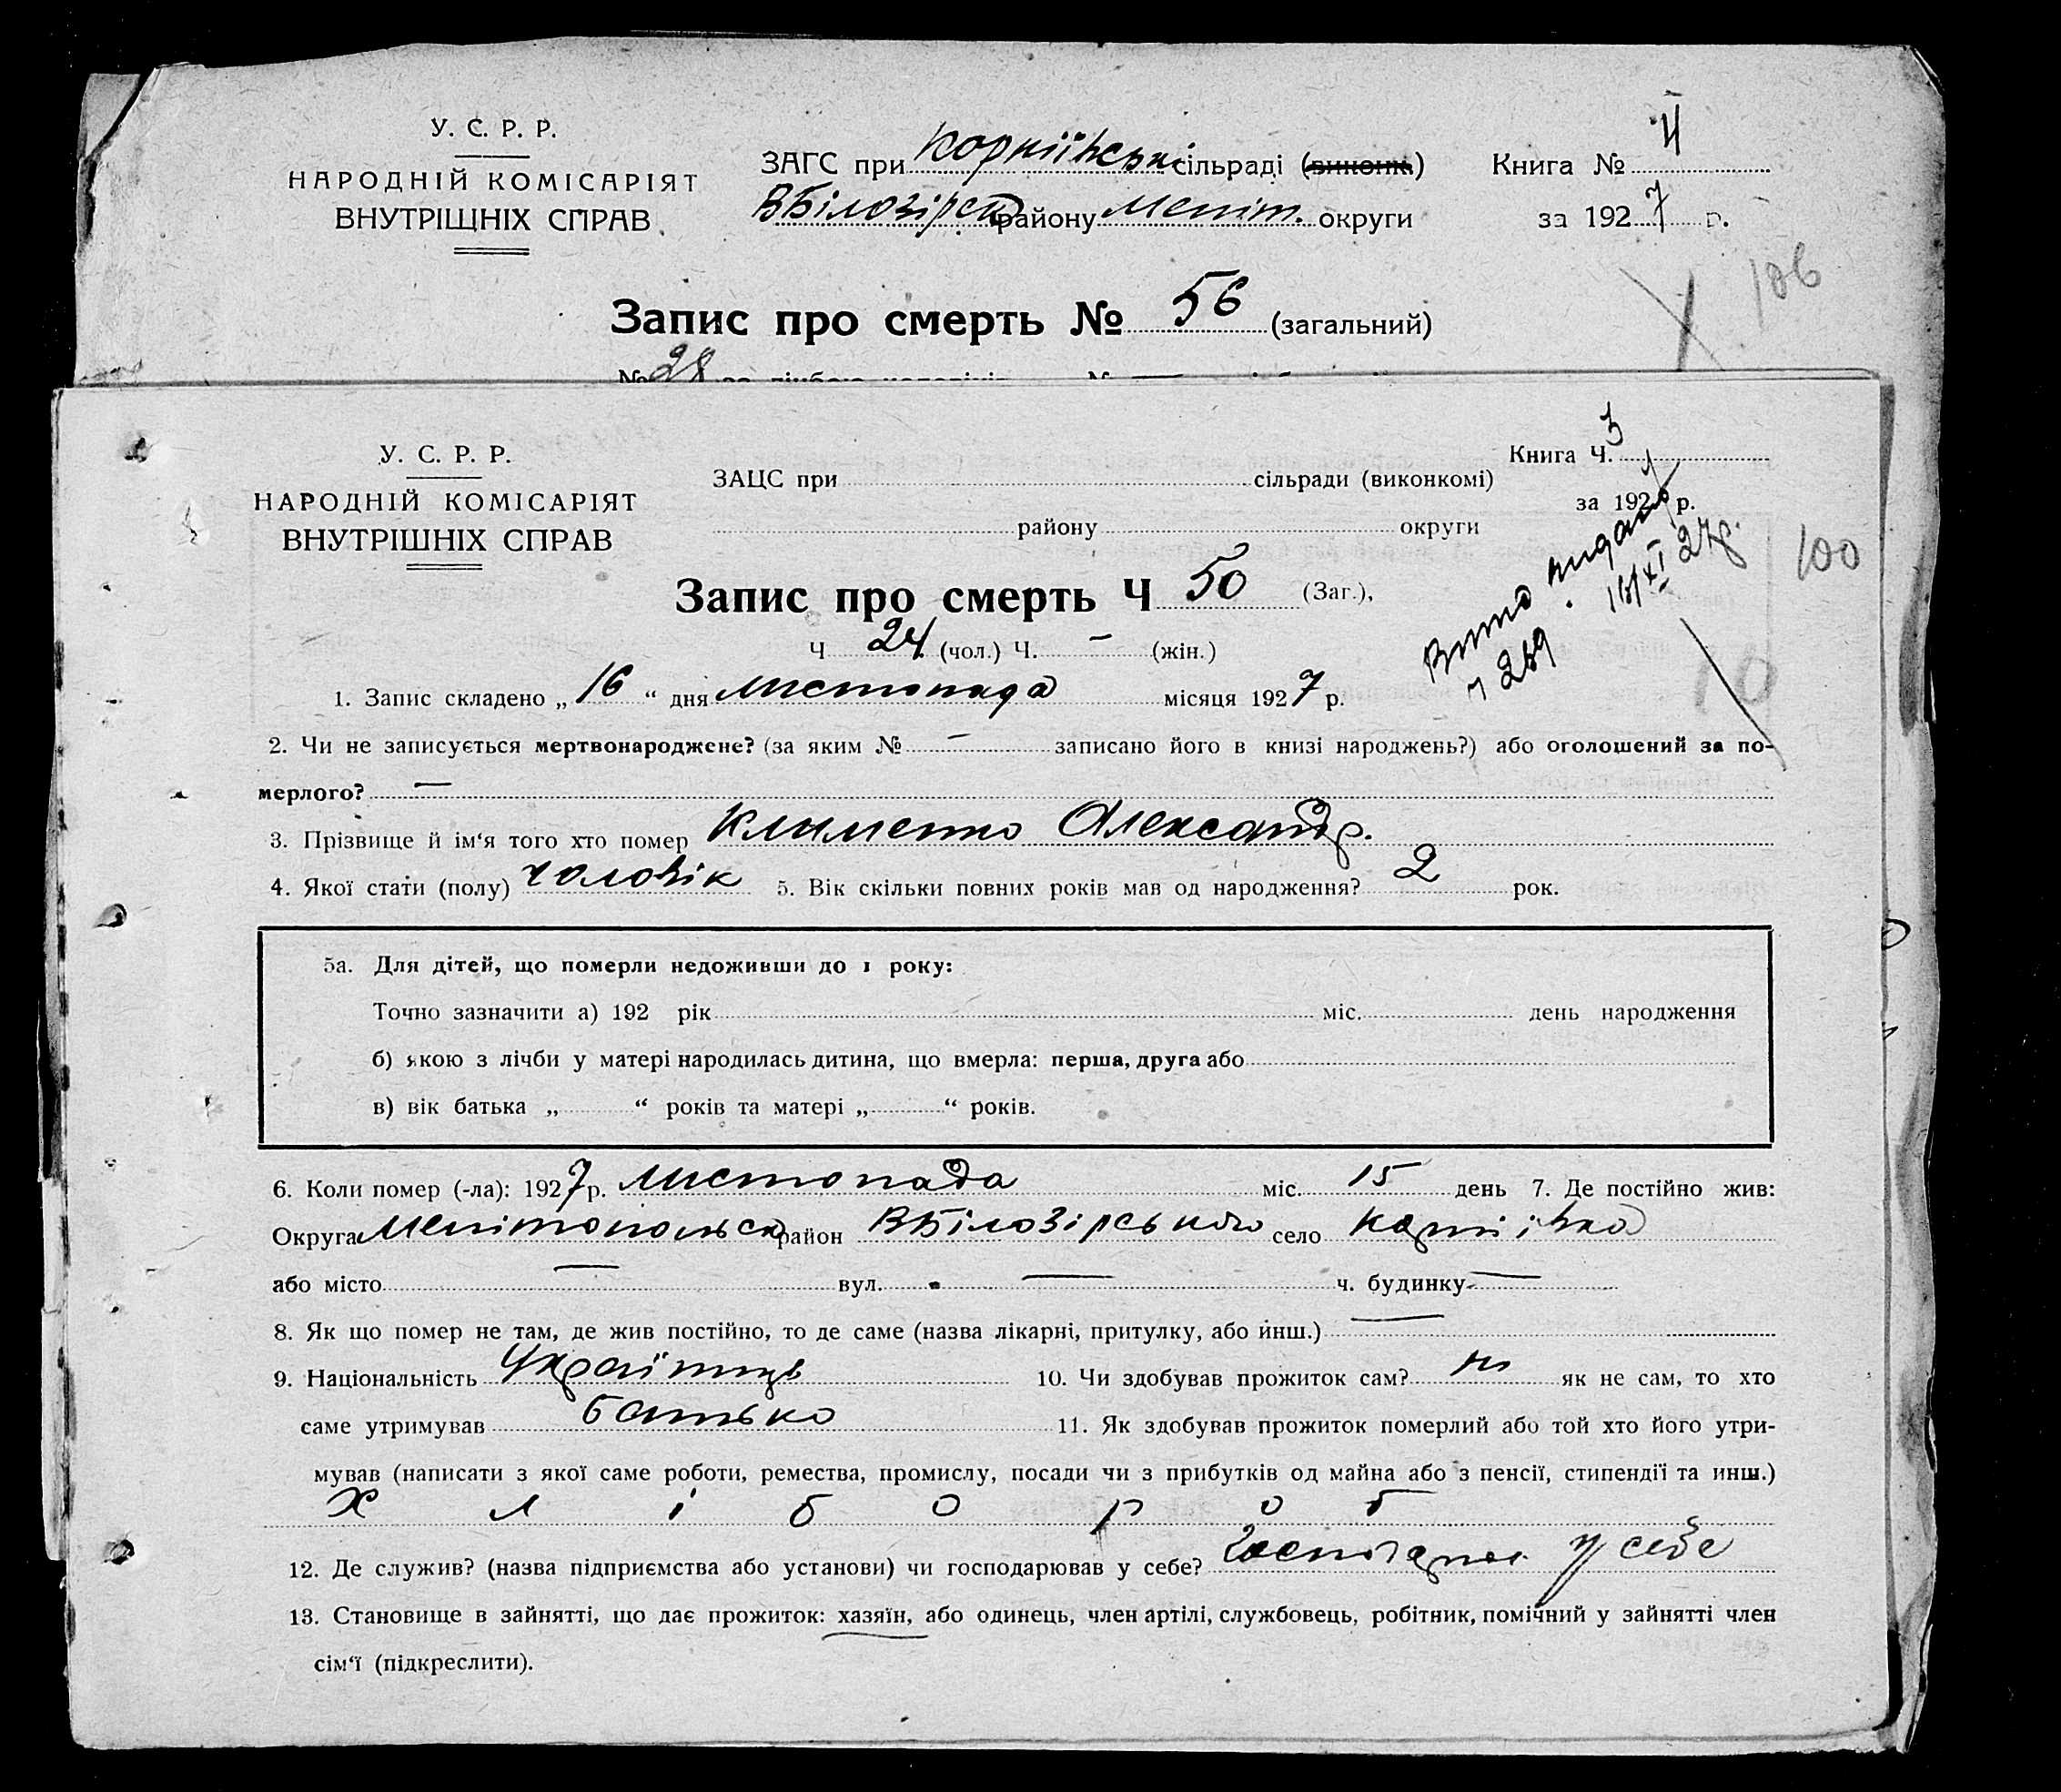 У. С. Р. Р.
НАРОДНІЙ КОМІСАРІЯТ
ВНУТРІЩНІХ СПРАВ
ЗАГС при Корніївські сільраді (виконк.)
ВБілозірськ району Меліт. округи
Книга № 4
за 1927 р.
106
Запис про смерть № 56 (загальний)
№ 28
У. С. Р. Р.
НАРОДНІЙ КОМІСАРІЯТ
ВНУТРІШНІХ СПРАВ
ЗАЦС при сільради (виконкомі)
району округи
Книга Ч. 3
за 1927 р.
100
Запис про смерть Ч 50 (Заг.),
Ч 24 (чол.) Ч. — (жін.)
видано
16/XI 27р.
10
1. Запис складено „16“ дня листопада місяця 1927 р.
2. Чи не записується мертвонароджене? (за яким № — записано його в книзі народжень?) або оголошений за по-
мерлого? —
3. Прізвище й ім‘я того хто помер Клименко Александр.
4. Якої стати (полу) чоловік 5. Вік скільки повних років мав од народження? 2 рок.
5а. Для дітей, що померли недоживши до 1 року:
Точно зазначити а) 192 рік міс. день народження
б) якою з лічби у матері народилась дитина, що вмерла: перша, друга або
в) вік батька „ “ років та матері „ “ років.
6. Коли помер (-ла): 1927 р. листопада міс. 15 день 7. Де постійно жив:
Округа Мелітопольск район ВБілозірського село Карніївка
або місто — вул. — ч. будинку —
8. Як що помер не там, де жив постійно, то де саме (назва лікарні, притулку, або йнш.) —
9. Національність Українець 10. Чи здобував прожиток сам? ні як не сам, то хто
саме утримував батько 11. Як здобував прожиток померлий або той хто його утри-
мував (написати з якої саме роботи, ремества, промислу, посади чи з прибутків од майна або з пенсії, стипендії та инш.)
Хлібороб
12. Де служив? (назва підприємства або установи) чи господарював у себе? у себе
13. Становище в зайнятті, що дає прожиток: хазяїн, або одинець, член артілі, службовець, робітник, помічний у зайнятті член
сім‘ї (підкреслити).